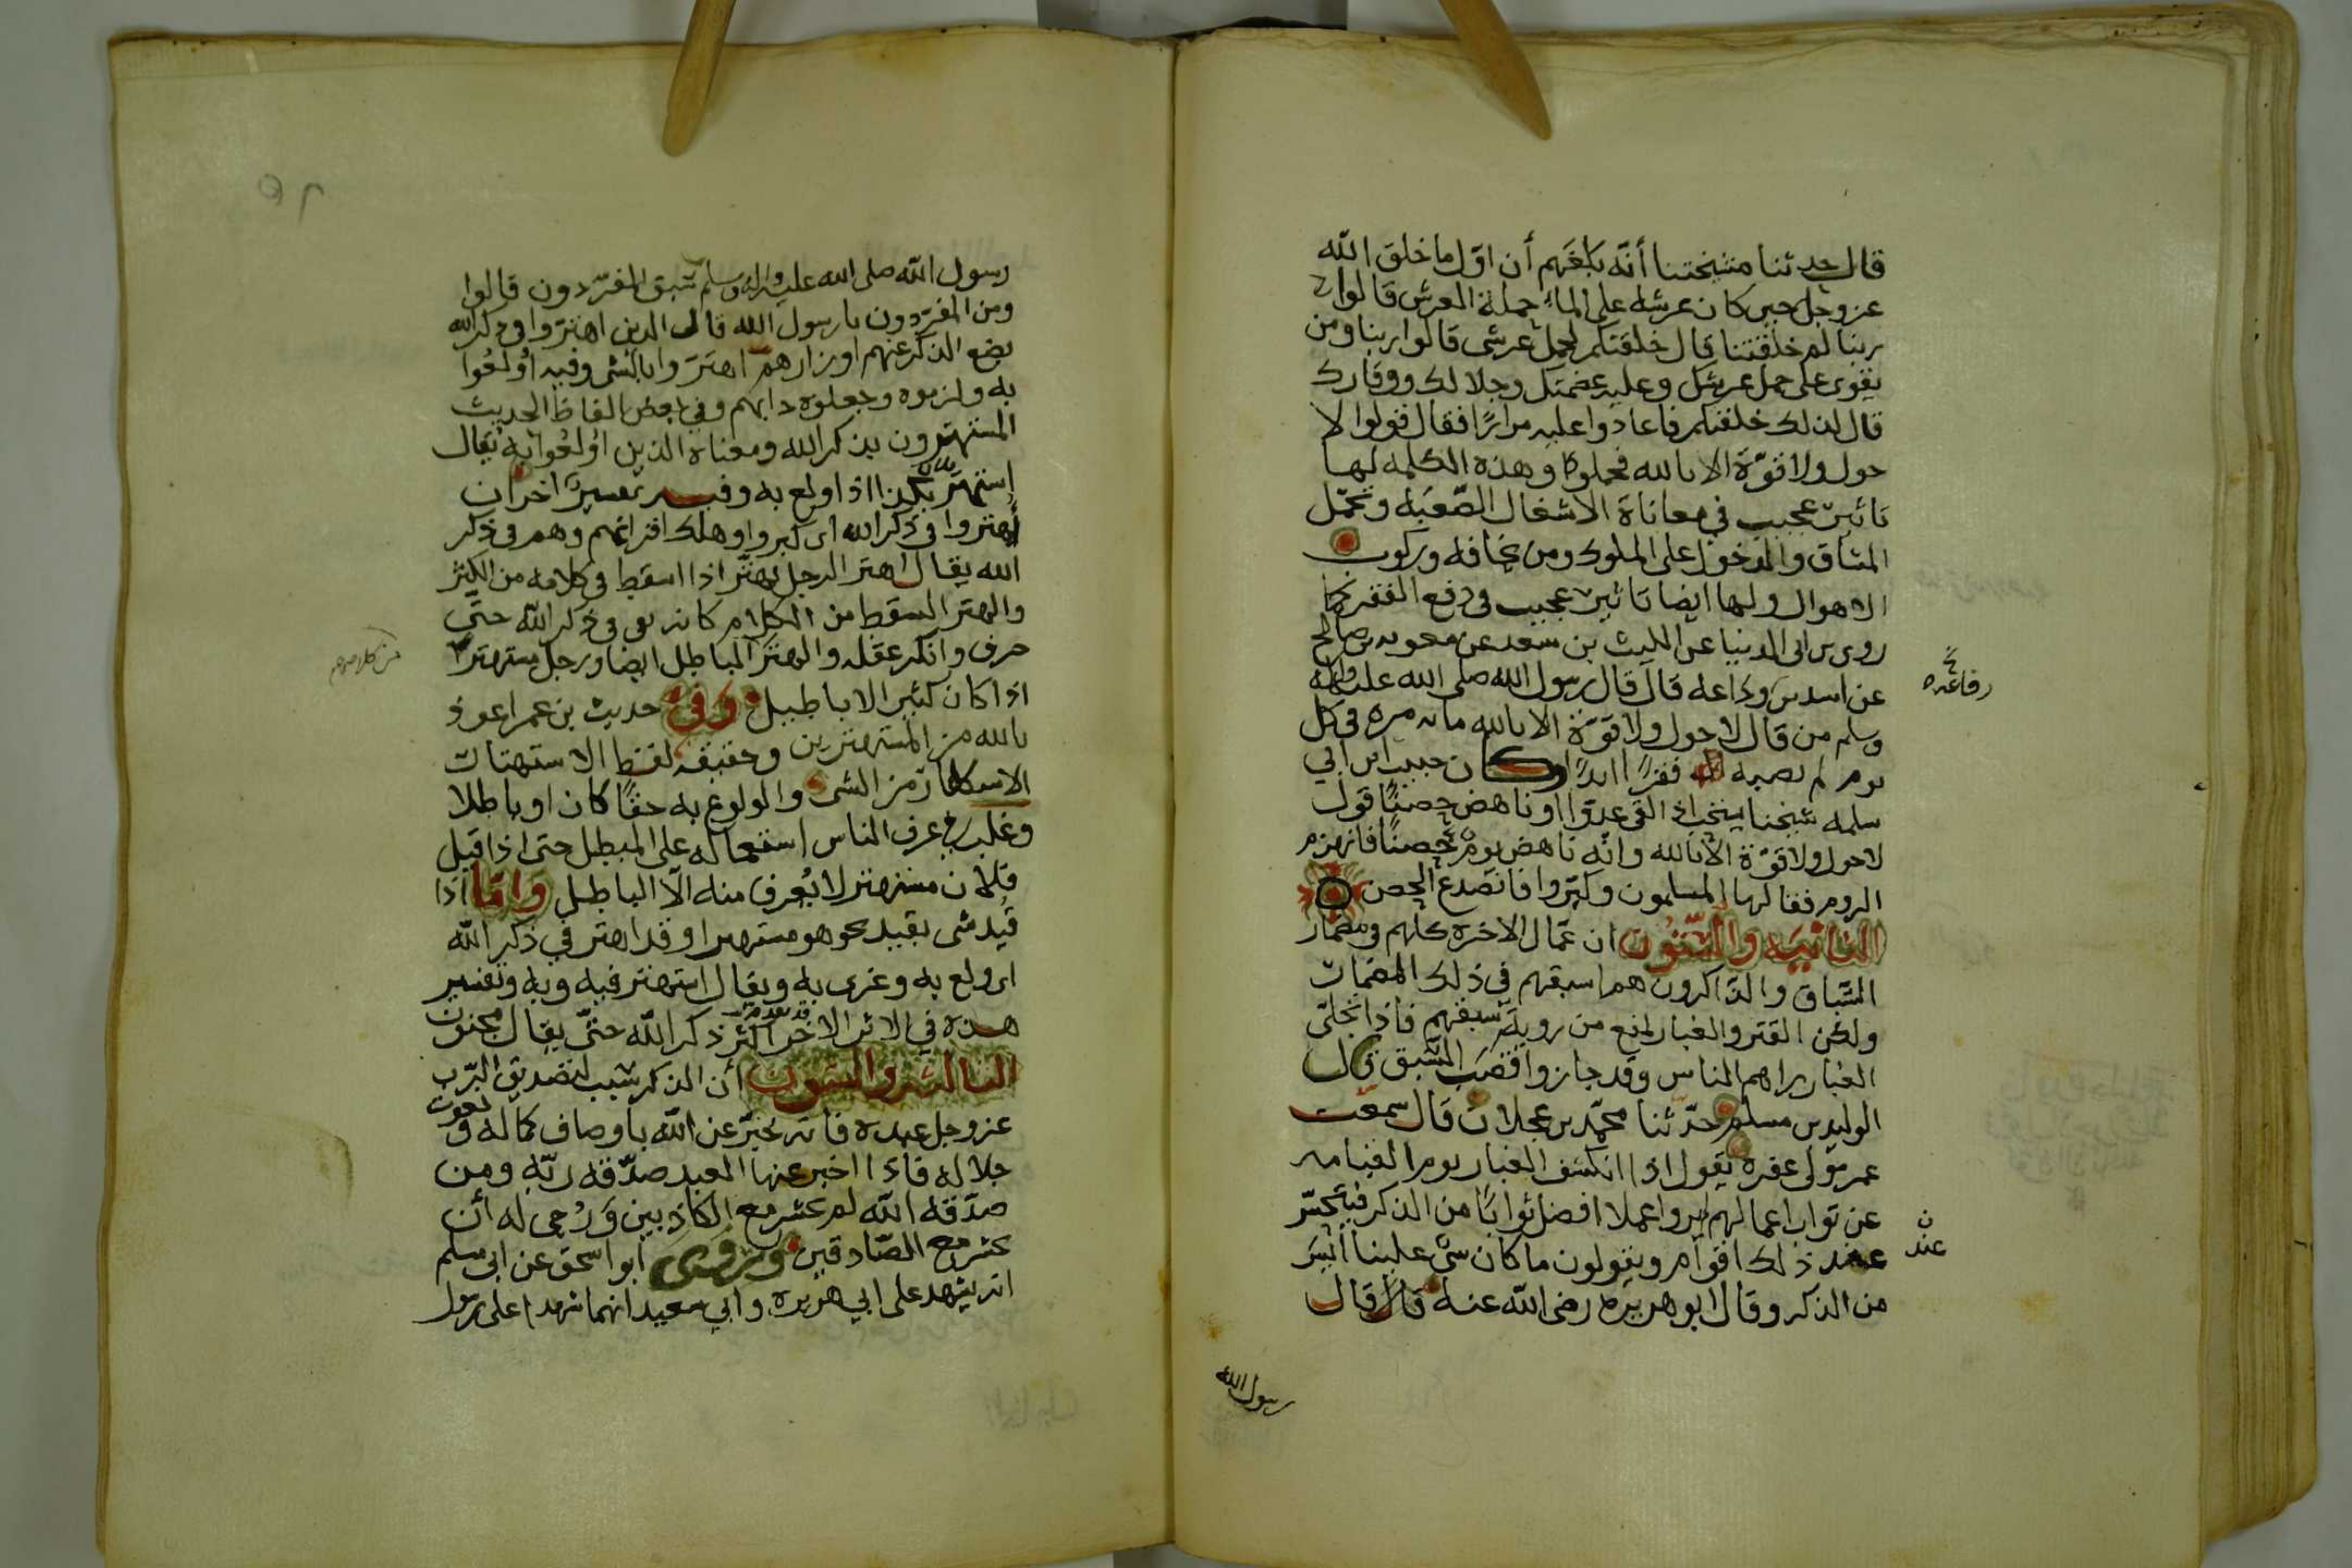 قال حدثنا مشيختنا أنّه بلغهم أن اوّل ما خلق الله
عز وجل حين كان عرشه على الماء حملة العرش قالوا
ربنا لم خلقتنا قال خلقتكم لحمل عرشى قالوا ربنا ومن
يقوى على حمل عرشك وعليه عضمتك وجلالك ووقارك
قال لذلك خلقتكم فاعادوا عليه مرارًا فقال قولوا لا
حول ولا قوّة الا بالله فحملوه وهذه الكلمه لها
تاثير عجيب في معاناة الاشغال الصّعبه وتحمّل
المشاق والدخول على الملوك ومن يخافه وركوب
الاهوال ولها ايضا تاثير عجيب فى دفع الفقر كما
روى بن ابى الدنيا عن الليث بن سعد عن معويه بن صالح
عن اسد بن وداعه قال قال رسول الله صلى الله عليه واله
رفاعه
وسلم من قال لا حول ولا قوّة الا بالله مائه مره في كل
يوم لم يصبه فقرًا ابدًا وكان حبيب ابن ابي
سلمه شيخنا يستحب اذا لقى عدوّا او ناهض حصنًا قول
لا حول ولا قوّة الا بالله وانّه ناهض يومًا حصنًا فانهزم
الروم فقالها المسلمون وكبّروا فانصدع الحصن
الثانيه والستون ان عمّال الاخره كلهم في مضمار
السّباق والذاكرون هم اسبقهم في ذلك المضمار
ولكن القتر والغبار لمنع من روية سبقهم فاذا انجلى
الغبار يراهم الناس وقد حازوا قصب السّبق قال
الوليد بن مسلم حدّثنا محمّد بن عجلان قال سمعت
عمر مولى عفره يقول اذا انكشف الغبار يوم القيامه
عن ثواب اعمالهم لم يروا عملا افضل ثوابًا من الذكر فيتحسّر
عند ذلك اقوام ويقولون ما كان شىء علينا ايسر
ن
عند
من الذكر وقال ابو هريره رضى الله عنه قال قال
رسول الله
رسول الله صلى الله عليه واله وسلم سبق المفرّدون قالوا
ومن المفرّدون يا رسول الله قال الذين اهتروا في ذكر الله
يضع الذكر عنهم اوزارهم اهتر وا بالشى وفيه اولعوا
به ولزموه وجعلوه دابهم وفي بعض الفاظ الحديث
المستهترون بذكر الله ومعناه الذين اولعوا به يقال
استهتر بكذا اذا اولع به وفيه تفسير اخر ان
اهتروا في ذكر الله اى كبروا وهلك اقرانهم وهم في ذكر
الله يقال اهتر الرجل يهتر اذا اسقط في كلامه من الكبر
والهتر السقط من الكلام كانه بقى في ذكر الله حتّى
خرف وانكر عقله والهتر الباطل ايضا ورجل مستهتر
من كلامهم
اذا كان كثير الاباطيل وفي حديث بن عمر اعوذ
بالله من المستهترين وحقيقه لفظ الاستهتار
الاستكثار من الشى والولوع به حقًا كان او باطلا
وغلب في عرف الناس استعماله على المبطل حتى اذا قيل
فلان مستهتر لا يُعرف منه الّا الباطل وامّا اذا
قُيد شى بقيد نحو هو مستهتر او قد اهتر في ذكر الله
اى ولع به وغرى به ويقال استهتر فيه وبه وتفسير
هذه في الاثر الاخر اكثر ذكر الله حتّى يقال مجنون
الثالثه والستون أن الذكر سبب لتصديق الرّب
عز وجل عبده فانه يخبّر عن الله باوصاف كماله و نعوت
جلاله فاذا اخبر عنها العبد صدّقه ربّه ومن
صدّقه الله لم يحشر مع الكاذبين وَرُجى له أن
يحشر مع الصّادقين وروى ابو اسحق عن ابي مسلم
انه يشهد على ابي هريره وابي سعيد انهما شهدا على رسول